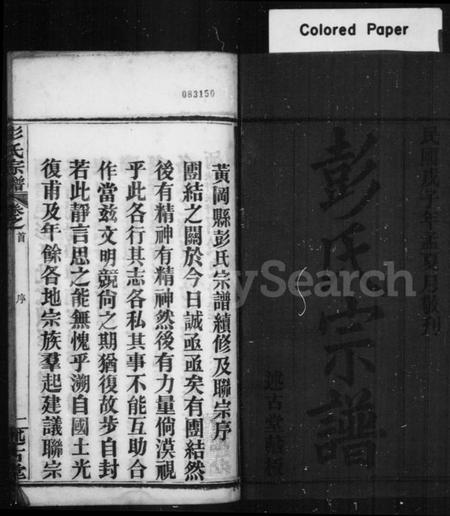 Colored Paper
民國戊子年孟夏月敬刊
彭氏宗譜
述古堂藏板
083150
黃岡縣彭氏宗譜續修及聯宗序
團結之關於今日誠亟亟矣有團結然
後有精神有精神然後有力量倘漠視
乎此各行其志各私其事不能互助合
作當茲文明競尚之期猶復故步自封
若此靜言思之能無愧乎溯自國土光
復甫及年餘各地宗族羣起建議聯宗
彭氏宗譜 卷之首 序 一 述古堂
MySearch